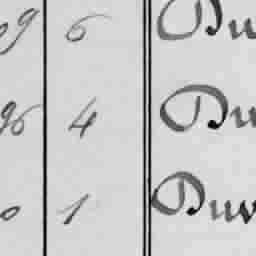 99 6 Du
96 4 Du
0 1 Duv